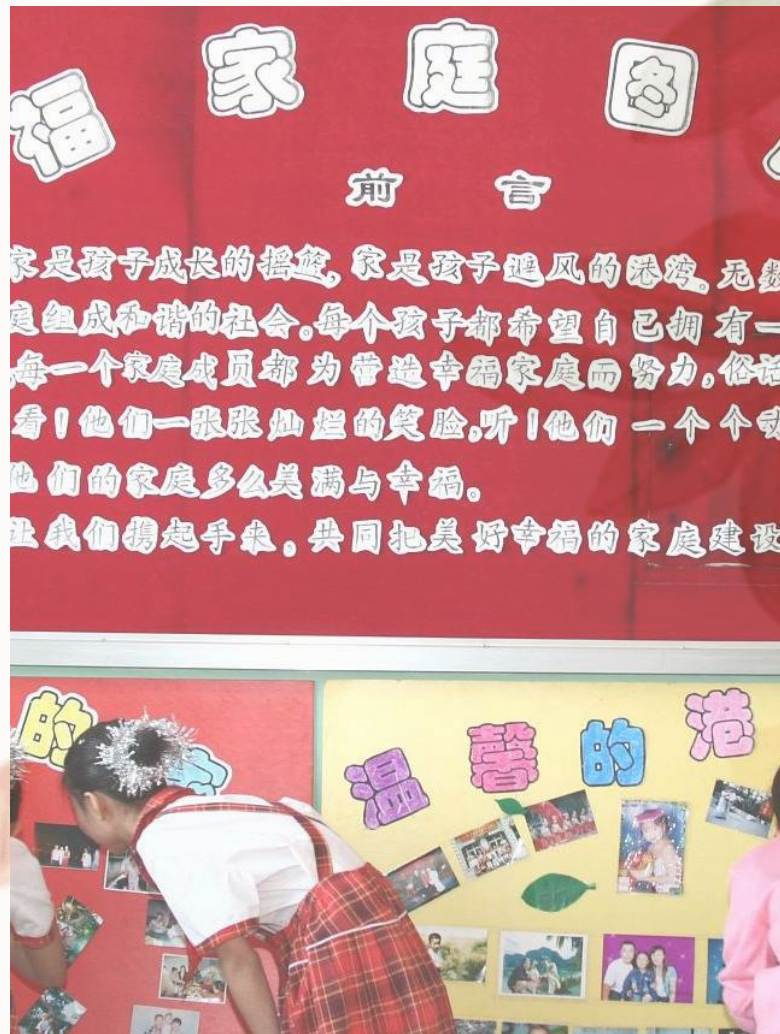 福家庭图
前言
家是孩子成长的摇篮,家是孩子避风的港湾。无数
庭组成和谐的社会。每个孩子都希望自己拥有一
每一个家庭成员都为营造幸福家庭而努力,俗话
看!他们一张张灿烂的笑脸,听!他们一个个
他们的家庭多么美满与幸福。
让我们携起手来,共同把美好幸福的家庭建设
的
温馨的港